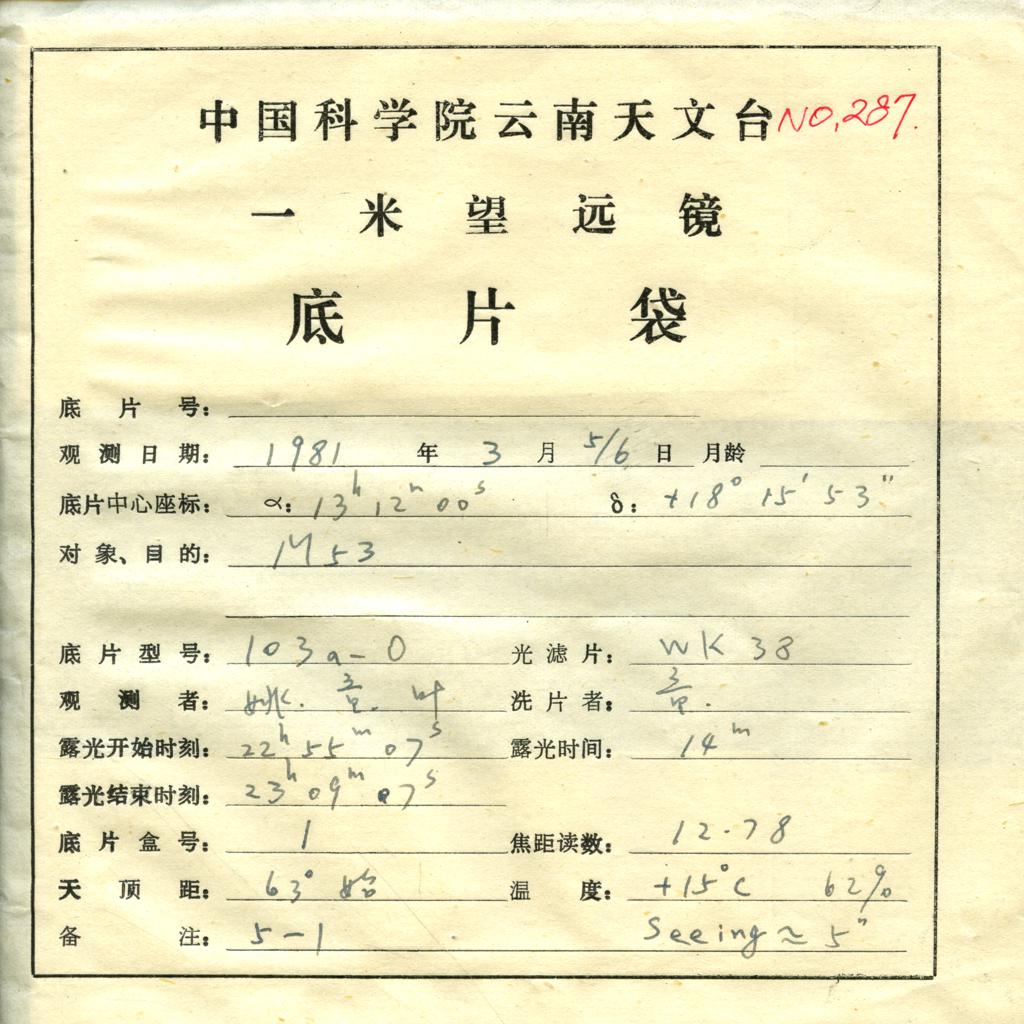 中国科学院云南天文台 NO.287.
一米望远镜
底片袋
底片号：
观测日期： 1981 年 3 月 5/6 日 月龄
底片中心座标： α： 13h 12m 00s δ： +18° 15′ 53″
对象、目的： M53
底片型号： 103a-O 光滤片： WK 38
观测者： 姚. 叶 洗片者：
露光开始时刻： 22h 55m 07s 露光时间： 14m
露光结束时刻： 23h 09m 07s
底片盒号： 1 焦距读数： 12.78
天顶距： 63° 始 温度： +15°C 62%
备注： 5-1 Seeing ≈ 5″